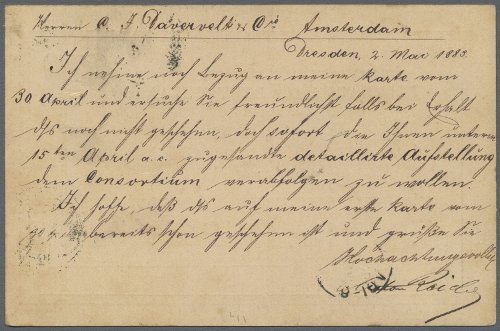 Herren C. J. Davervelt & Cie Amsterdam
Dresden, 2. Mai 1883.
Ich nehme noch Bezug an meine Karte vom
30 April und ersuche Sie freundlichst falls bei Erhalt
dss noch nicht geschehen, doch sofort die Ihnen unterm
15ten April a.c. zugesandte detaillirte Aufstellung
dem Consortium verabfolgen zu wollen.
Ich hoffe, daß dss auf meine erste Karte vom
bereits schon geschehen ist und grüße Sie
Hochachtungsvollst